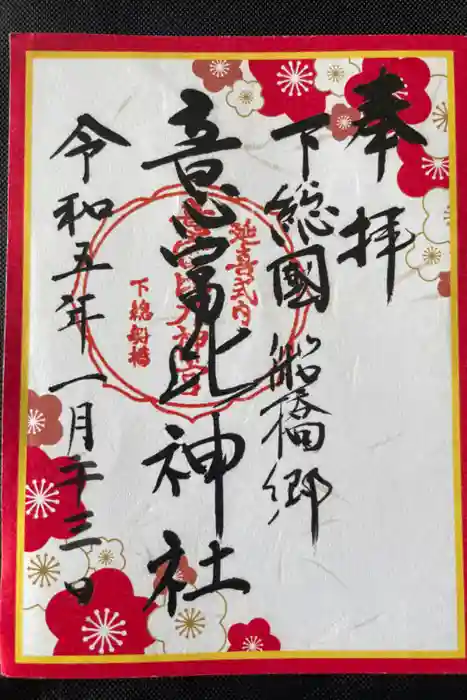 奉拝
下総國船橋郷
意富比神社
令和五年一月廿三日
延喜式内
意富比神宮
下総船橋